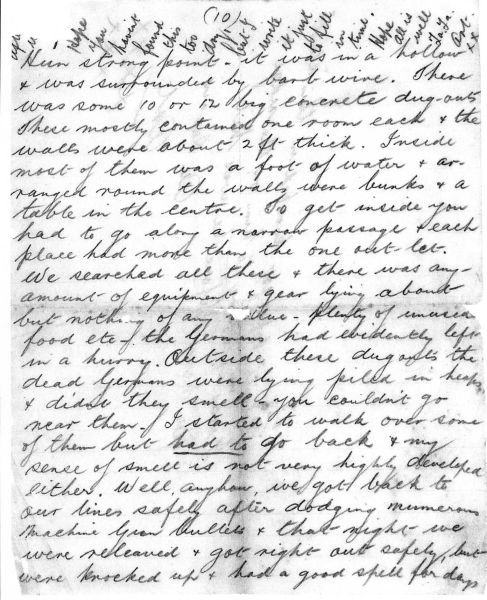 (10)
Hope you havent found this too dry, but I write it just to fill in time. Hope all is well Ta-Ta Art
Hun strong point - it was in a hollow
& was surrounded by barb wire. There
was some 10 or 12 big concrete dug-outs
These mostly contained one room each & the
walls were about 2 ft thick. Inside
most of them was a foot of water & ar-
ranged round the walls were bunks & a
table in the centre. To get inside you
had to go along a narrow passage & each
place had more than the one out-let.
We searched all these & there was any-
amount of equipment & gear lying about
but nothing of any value - plenty of unused
food etc - the Germans had evidently left
in a hurry. Outside these dugouts the
dead Germans were lying piled in heaps,
& didnt they smell - you couldn't go
near them. I started to walk over some
of them but had to go back & my
sense of smell is not very highly developed
either. Well anyhow we got back to
our lines safely after dodging numerous
Machine Gun bullets & that night we
were releaved & got right out safely, but
were knocked up & had a good spell for days